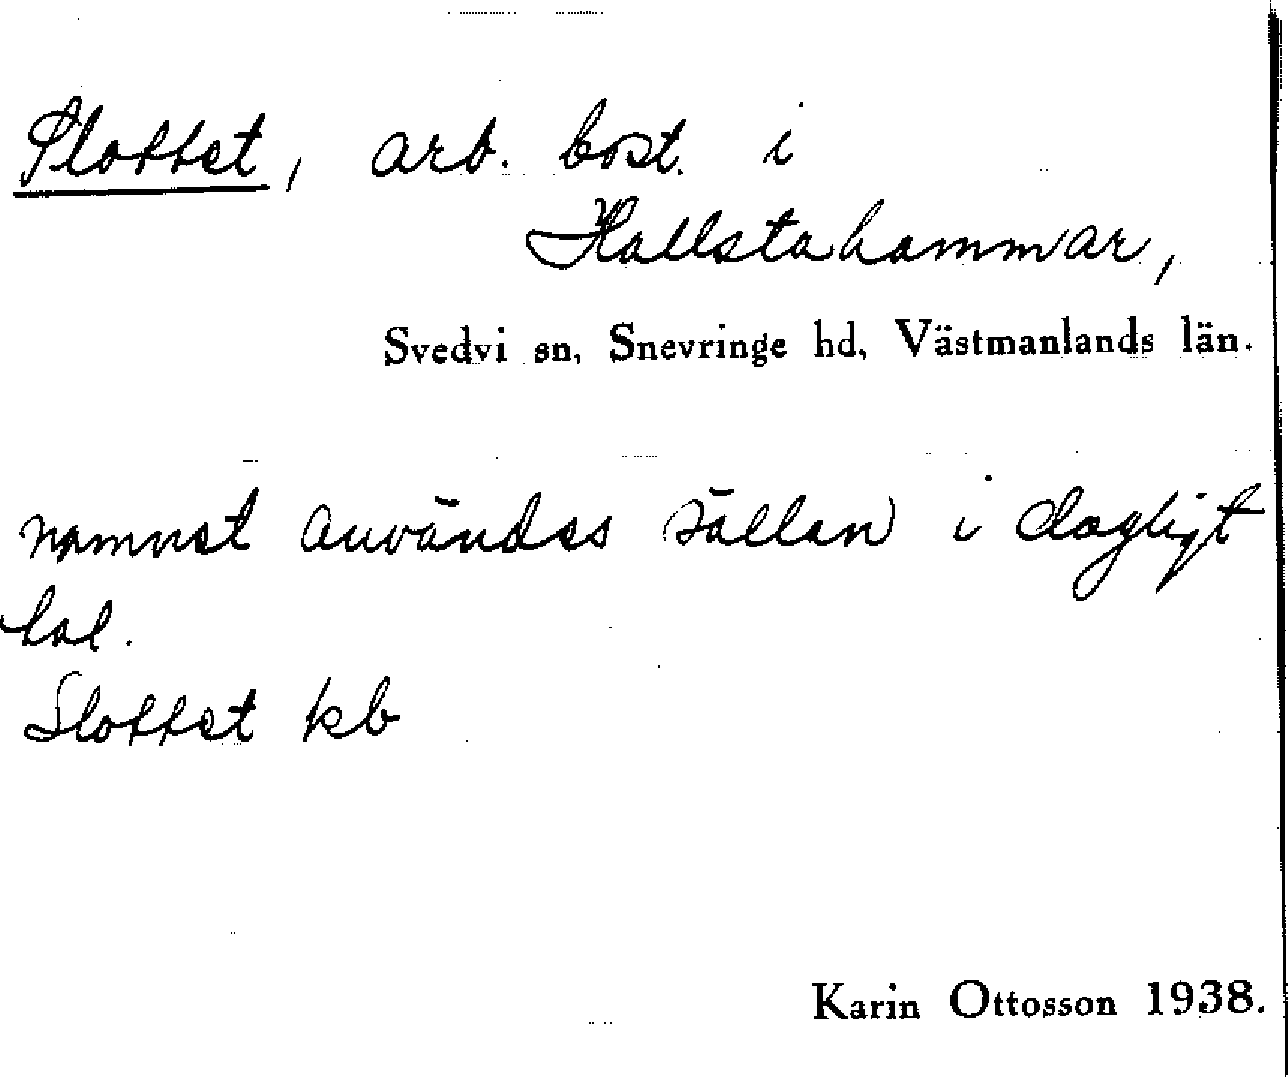 Slottet, arb. bost. i
Hallstahammar,
Svedvi sn, Snevringe hd, Västmanlands län.
namnet användes sällan i dagligt
tal.
Slottet kb
Karin Ottosson 1938.